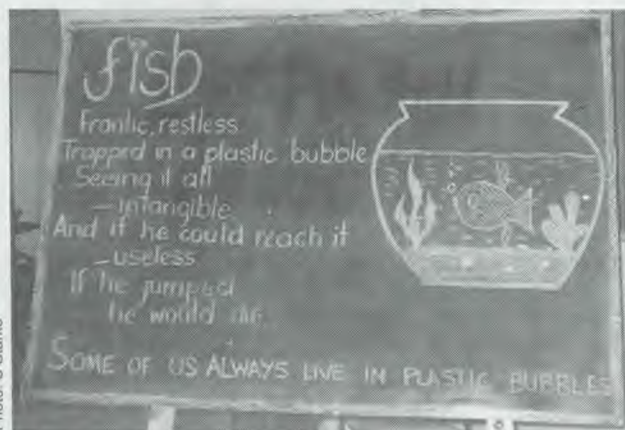 fish
Frantic, restless
Trapped in a plastic bubble
Seeing it all
– intangible
And if he could reach it
– useless
If he jumped
he would die
SOME OF US ALWAYS LIVE IN PLASTIC BUBBLES